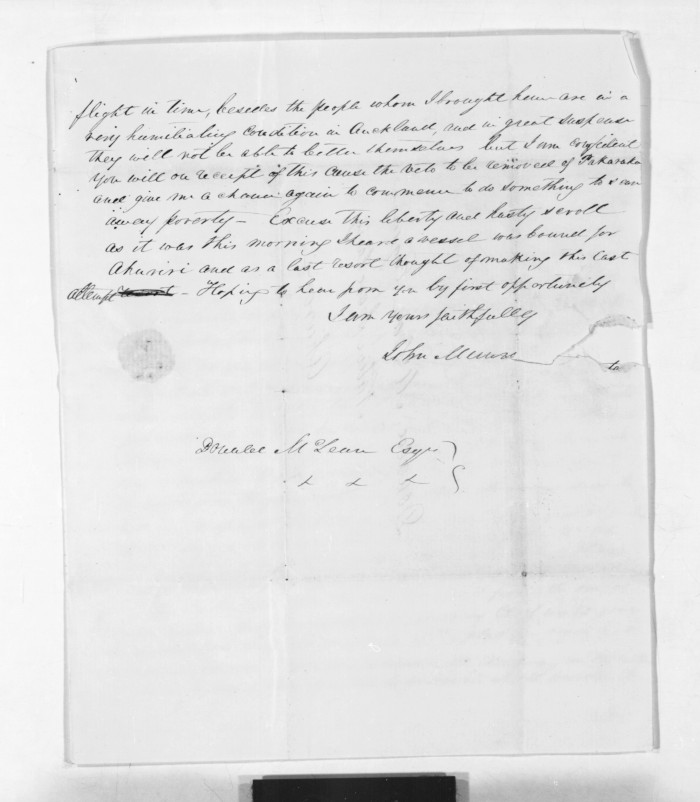 flight in time, besides the people whom I brought here are in a
very humiliating condition in Auckland, and in great suspense
they will not be able to better themselves but I am confident
you will on receipt of this cause the veto to be removed of Pakaraka
and give me a chance again to commence to do something to
away poverty – Excuse this liberty and hasty scroll
as it was this morning I heard a vessel was bound for
Ahuriri and as a last resort thought of making this last
attempt – Hoping to hear from you by first opportunity
I am yours faithfully
John Munro
to
Donald McLean Esqre
x x x